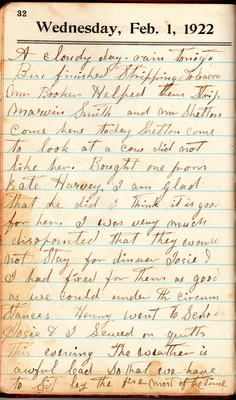 32
Wednesday, Feb. 1, 1922
A cloudy day. rain tonigt
finished Stripping Tobacco
Mr Booker Helped them Strip
Marvin Smith and mr Shelton
come here today Shelton come
to look at a cow did not
like her. Bought one from
Kate Harvey, I am Glad
that he did I think it is good
for her. I was very much
disopointed that they would
not Stay for dinner Josie &
I had fixed for them as good
as we could under the circum
stances Henny went to Scho-
Josie & I Sewed on quilts
this evening The Weather is
awful bad So that we have
to Sit by the fire most of the time